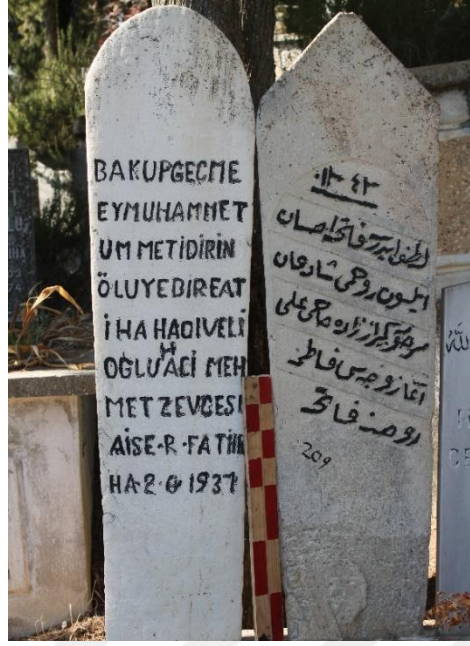 BAKUPGECME
EYMUHAMMET
UM METIDIRIN
ÖLUYEBIREAT
İHA HACIVELİ
OĞLU HACİ MEH
MET ZEVCESİ
AİSE·R·FATİH
HA·2·6 1937
١٣٤٢
لطف ایدن فاتحه احسان
ایلسون روحی شادمان
زاده حاجی علی
اغا زوجه سی فاطمه
روحنه فاتحه
209